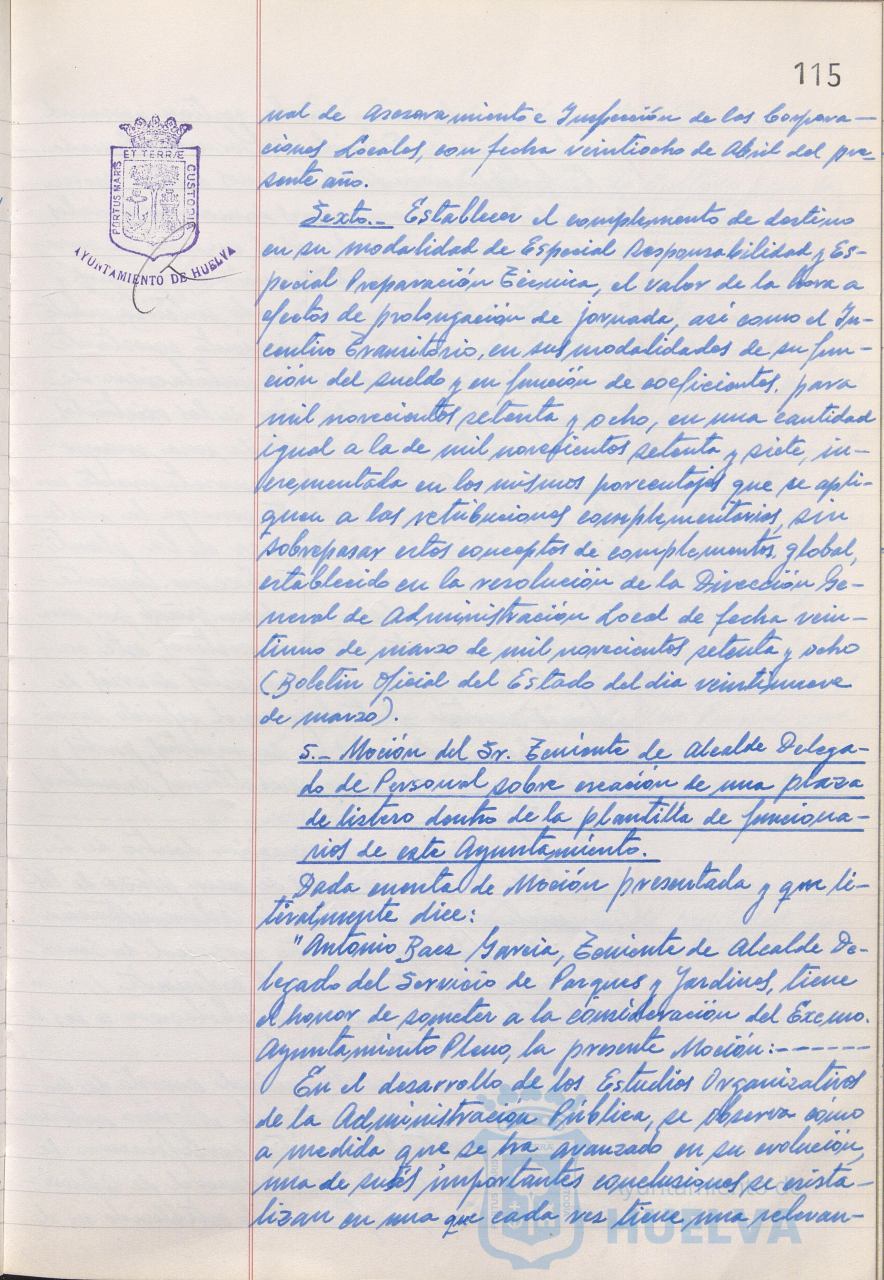 115
PORTUS MARIS ET TERRÆ CUSTODIA
AYUNTAMIENTO DE HUELVA
nal de Asesoramiento e Inspección de las Corpora-
ciones Locales, con fecha veintiocho de Abril del pre-
sente año.
Sexto.- Establecer el complemento de destino
en su modalidad de Especial Responsabilidad y Es-
pecial Preparación Técnica, el valor de la hora a
efectos de prolongación de jornada, así como el In-
centivo Transitorio, en sus modalidades de su fun-
ción del sueldo y en función de coeficientes, para
mil novecientos setenta y ocho, en una cantidad
igual a la de mil novecientos setenta y siete, in-
crementada en los mismos porcentajes que se apli-
quen a las retribuciones complementarias, sin
sobrepasar estos conceptos de complementos, global,
establecido en la resolución de la Dirección Ge-
neral de Administración Local de fecha vein-
tiuno de marzo de mil novecientos setenta y ocho
(Boletín Oficial del Estado del dia veintinueve
de marzo).
5.- Moción del Sr. Teniente de Alcalde Delega-
do de Personal sobre creación de una plaza
de listero dentro de la plantilla de funciona-
rios de este Ayuntamiento.
Dada cuenta de Moción presentada y que li-
teralmente dice:
"Antonio Baez Garcia, Teniente de Alcalde De-
legado del Servicio de Parques y Jardines, tiene
el honor de someter a la consideración del Excmo.
Ayuntamiento Pleno, la presente Moción:------
En el desarrollo de los Estudios Organizativos
de la Administración Pública, se observa cómo
a medida que se ha avanzado en su evolución,
una de sus importantes conclusiones se crista-
lizan en una que cada vez tiene una relevan-
Ayuntamiento de
HUELVA